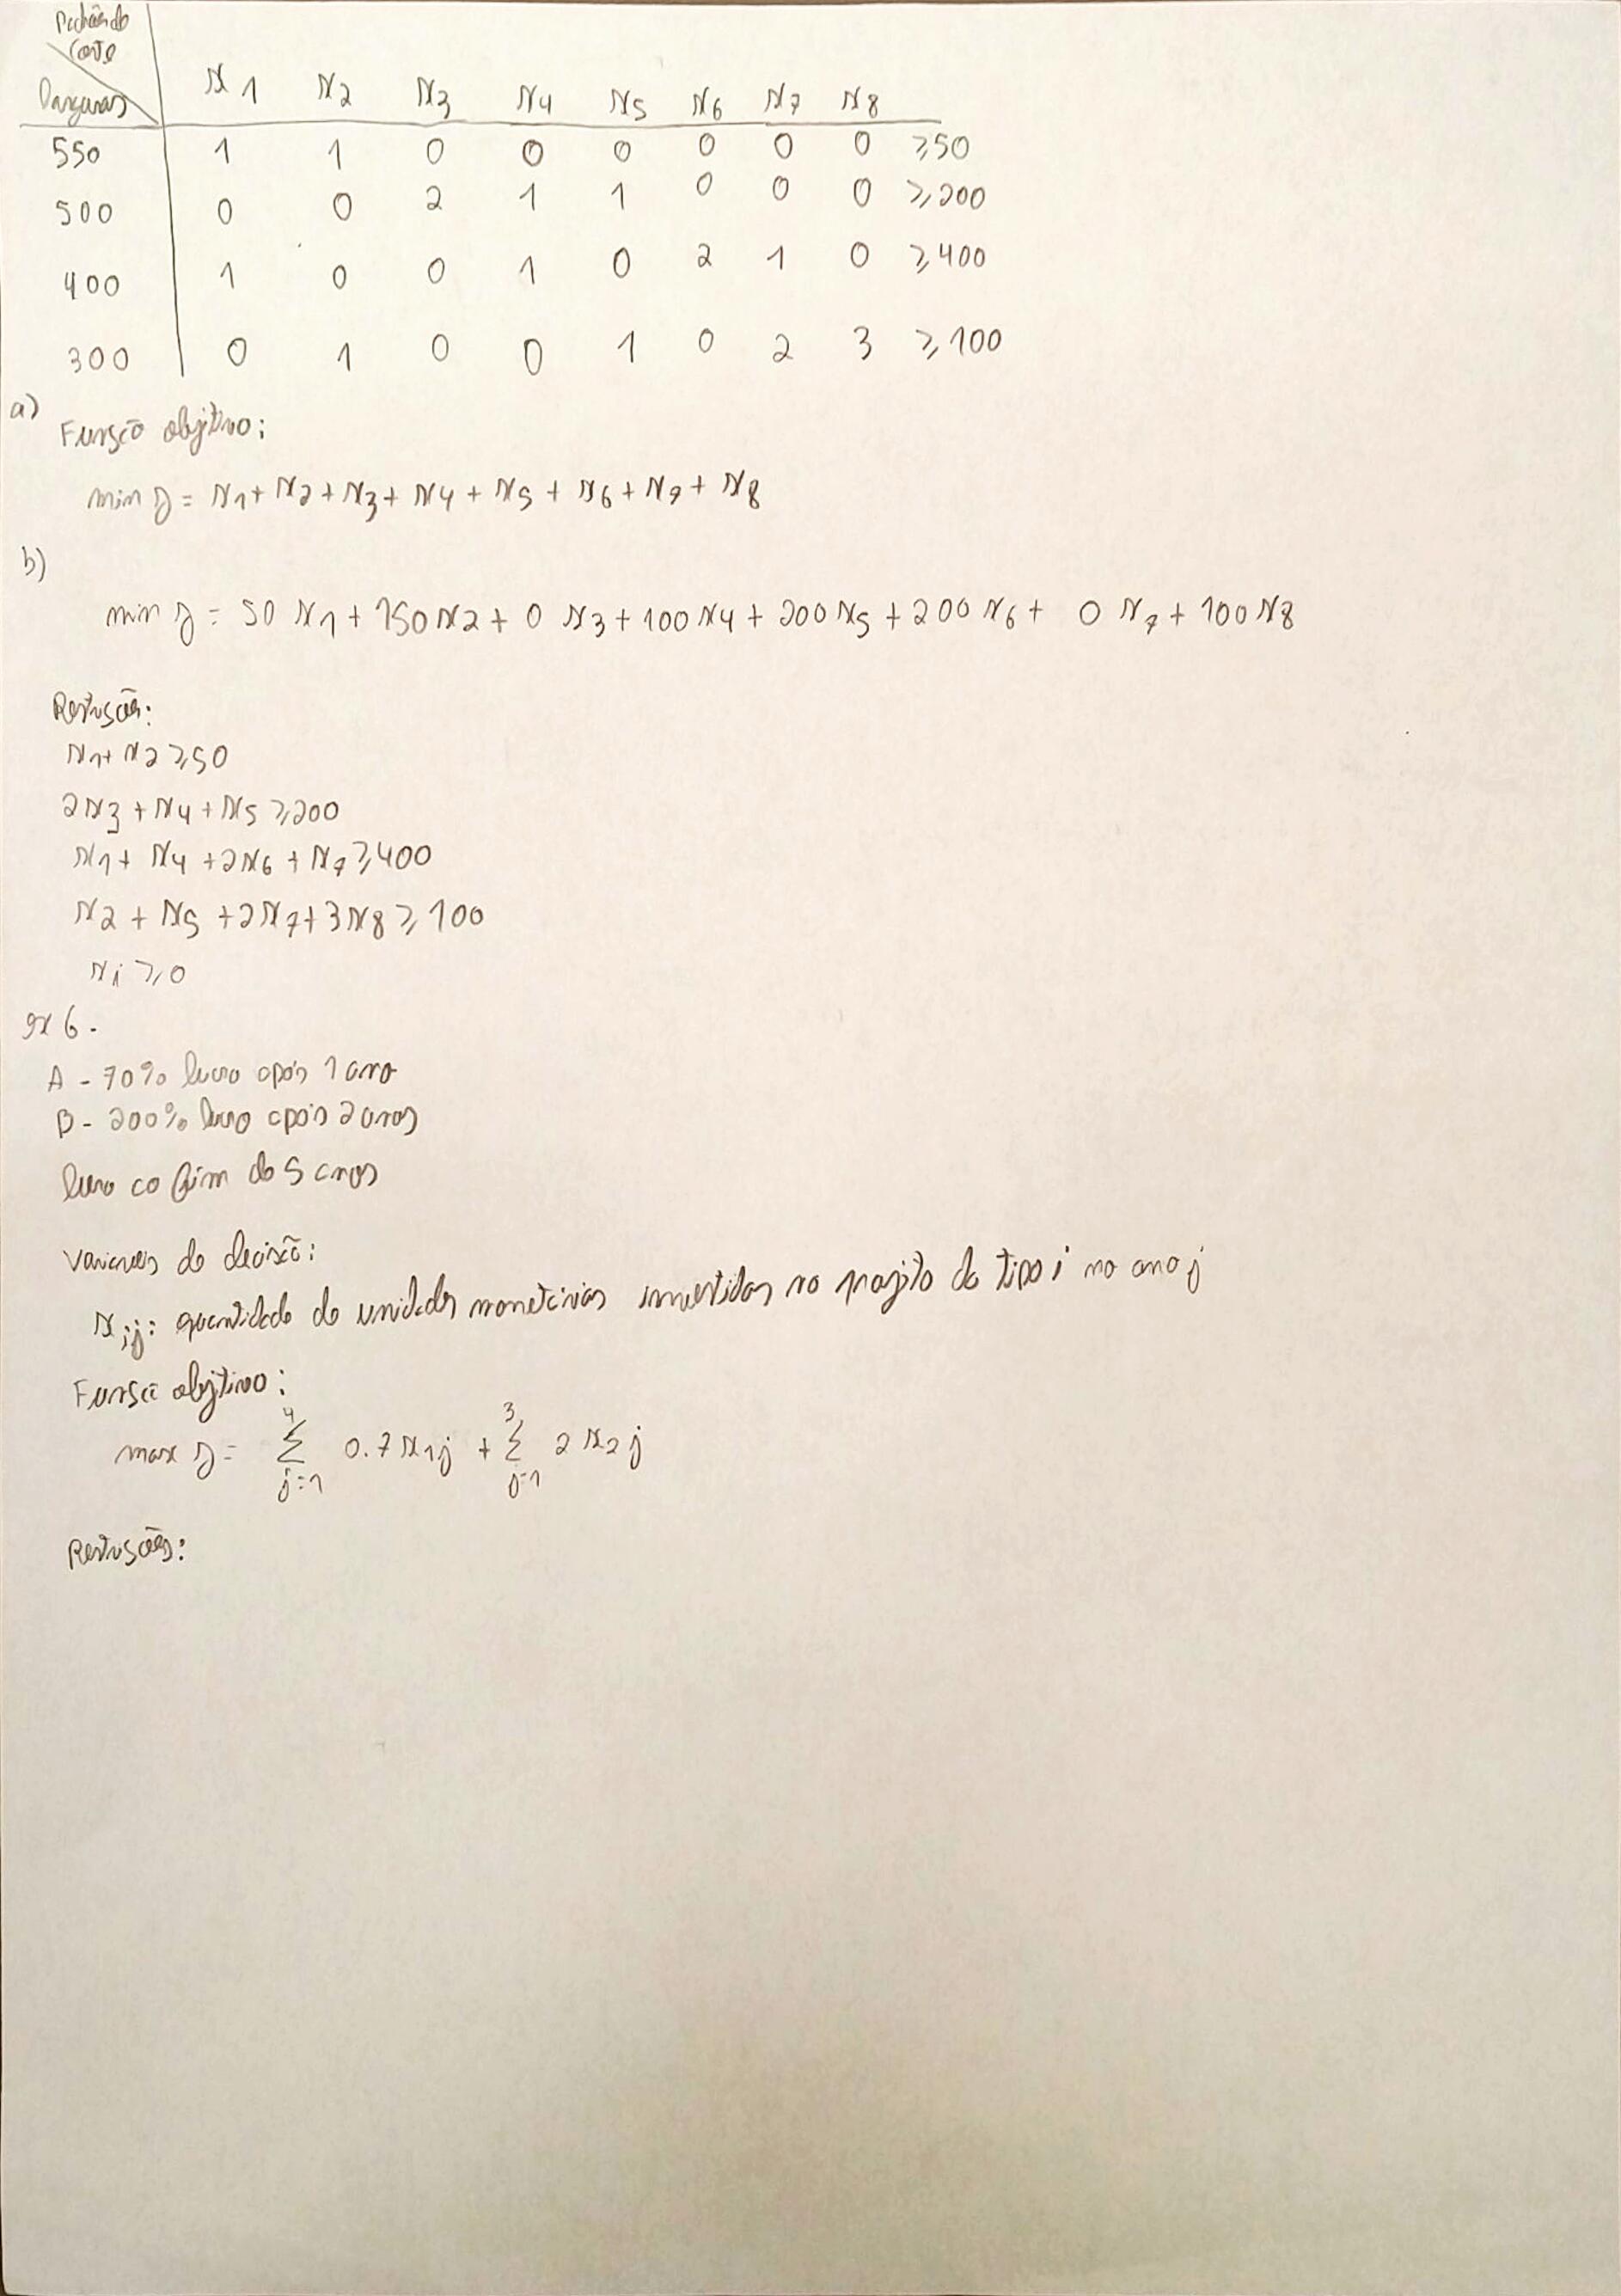 Padrão de
Corte
Larguras x1 x2 x3 x4 x5 x6 x7 x8
550 1 1 0 0 0 0 0 0 ≥50
500 0 0 2 1 1 0 0 0 ≥200
400 1 0 0 1 0 2 1 0 ≥400
300 0 1 0 0 1 0 2 3 ≥100
a)
Função objetivo:
min z = x1 + x2 + x3 + x4 + x5 + x6 + x7 + x8
b)
min z = 50 x1 + 150 x2 + 0 x3 + 100 x4 + 200 x5 + 200 x6 + 0 x7 + 100 x8
Restrições:
x1 + x2 ≥50
2x3 + x4 + x5 ≥200
x1 + x4 + 2x6 + x7 ≥400
x2 + x5 + 2x7 + 3x8 ≥100
xi ≥0
ex 6 -
A - 70% lucro após 1 ano
B - 200% lucro após 2 anos
lucro ao fim de 5 anos
Variaveis de decisão:
xij: quantidade de unidades monetárias investidas no projeto do tipo i no ano j
Função objetivo:
max z = 4 ∑ j=1 0.7 x1j + 3 ∑ j=1 2 x2j
Restrições: